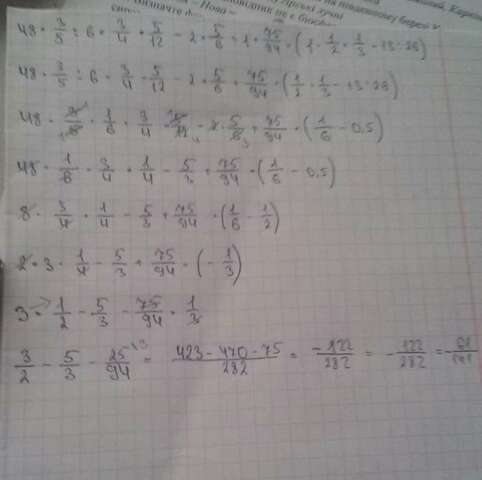 48 · 3/5 : 6 · 3/4 · 5/12 - 2 · 5/6 + 1 · 75/94 · (1 · 1/2 · 1/3 - 13 : 26)
48 · 3/5 : 6 · 3/4 · 5/12 - 2 · 5/6 + 75/94 · (1/2 · 1/3 - 13 : 26)
48 · 3/5 · 1/6 · 3/4 · 5/12 - 2 · 5/6 + 75/94 · (1/6 - 0,5)
48 · 1/6 · 3/4 · 1/4 - 5/3 + 75/94 · (1/6 - 0,5)
8 · 3/4 · 1/4 - 5/3 + 75/94 · (1/6 - 1/2)
2 · 3 · 1/4 - 5/3 + 75/94 · (- 1/3)
3 · 1/2 - 5/3 - 75/94 · 1/3
3/2 - 5/3 - 25/94 = 423 - 470 - 75/282 = -122/282 = - 122/282 = - 61/141